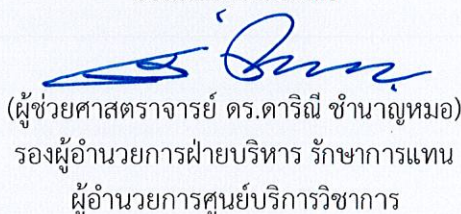 (ผู้ช่วยศาสตราจารย์ ดร.ดาริณี ชำนาญหมอ)
รองผู้อำนวยการฝ่ายบริหาร รักษาการแทน
ผู้อำนวยการศูนย์บริการวิชาการ